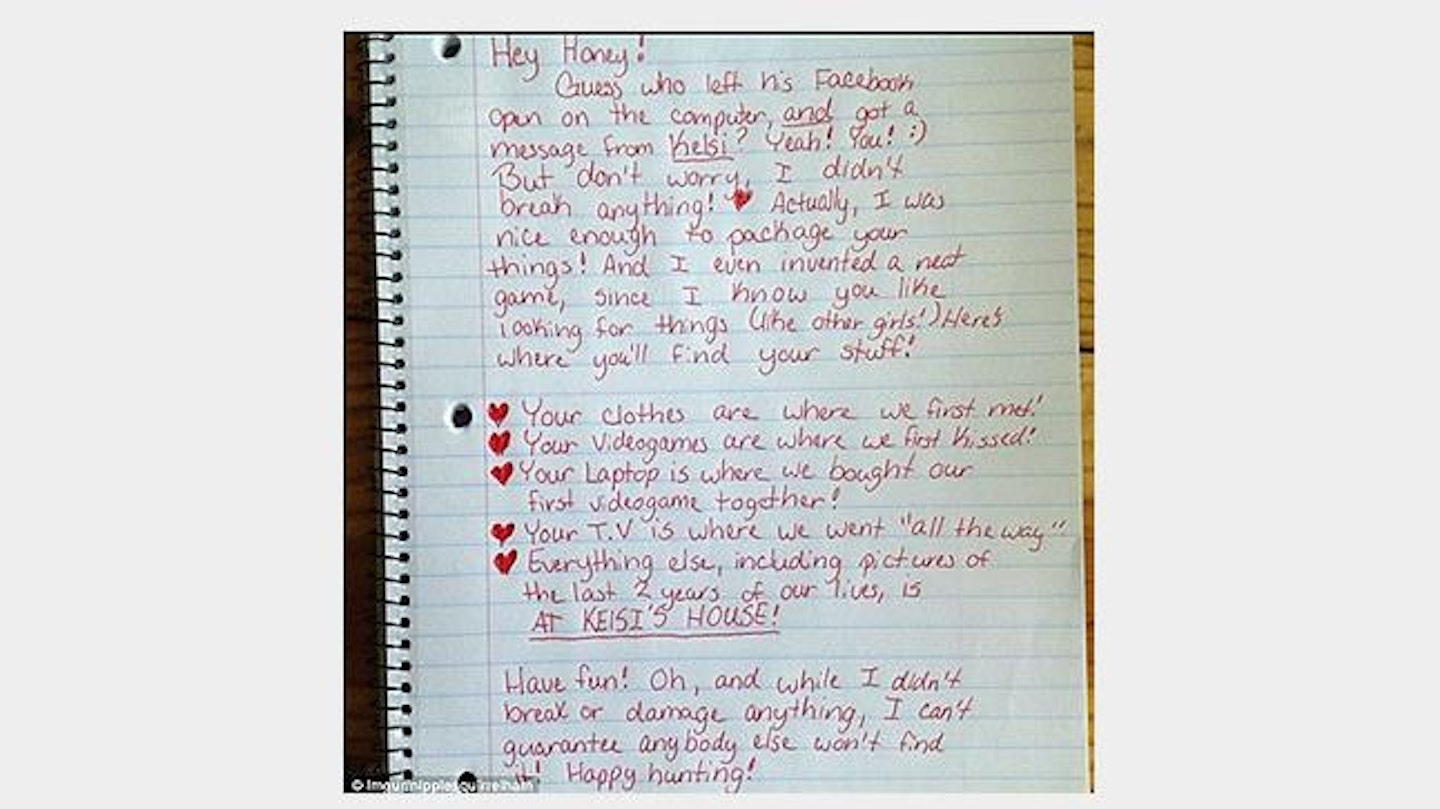 Hey Honey!
Guess who left his Facebook
open on the computer, and got a
message from Kelsi? Yeah! You! :)
But don't worry, I didn't
break anything! ♥ Actually, I was
nice enough to package your
things! And I even invented a neat
game, since I know you like
looking for things (like other girls!) Here's
where you'll find your stuff!
♥ Your clothes are where we first met!
♥ Your videogames are where we first kissed!
♥ Your Laptop is where we bought our
first videogame together!
♥ Your T.V is where we went "all the way"
♥ Everything else, including pictures of
the last 2 years of our lives, is
AT KELSI'S HOUSE!
Have fun! Oh, and while I didn't
break or damage anything, I can't
guarantee anybody else won't find
it! Happy hunting!